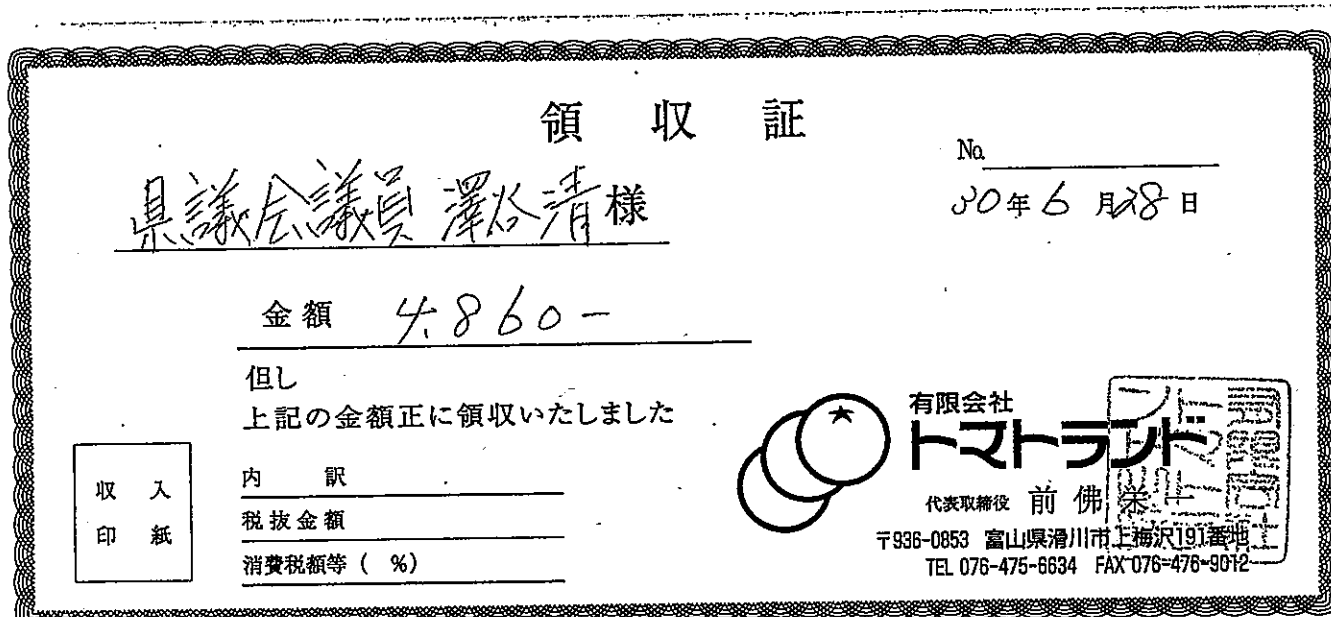 領収証
No.
県議会議員 澤谷清様
30年6月28日
金額 4,860-
但し
上記の金額正に領収いたしました
収入
印紙
内訳
税抜金額
消費税額等 ( %)
有限会社
トマトランド
代表取締役 前佛栄一
〒936-0853 富山県滑川市上梅沢191番地
TEL 076-475-6634 FAX 076-476-9012